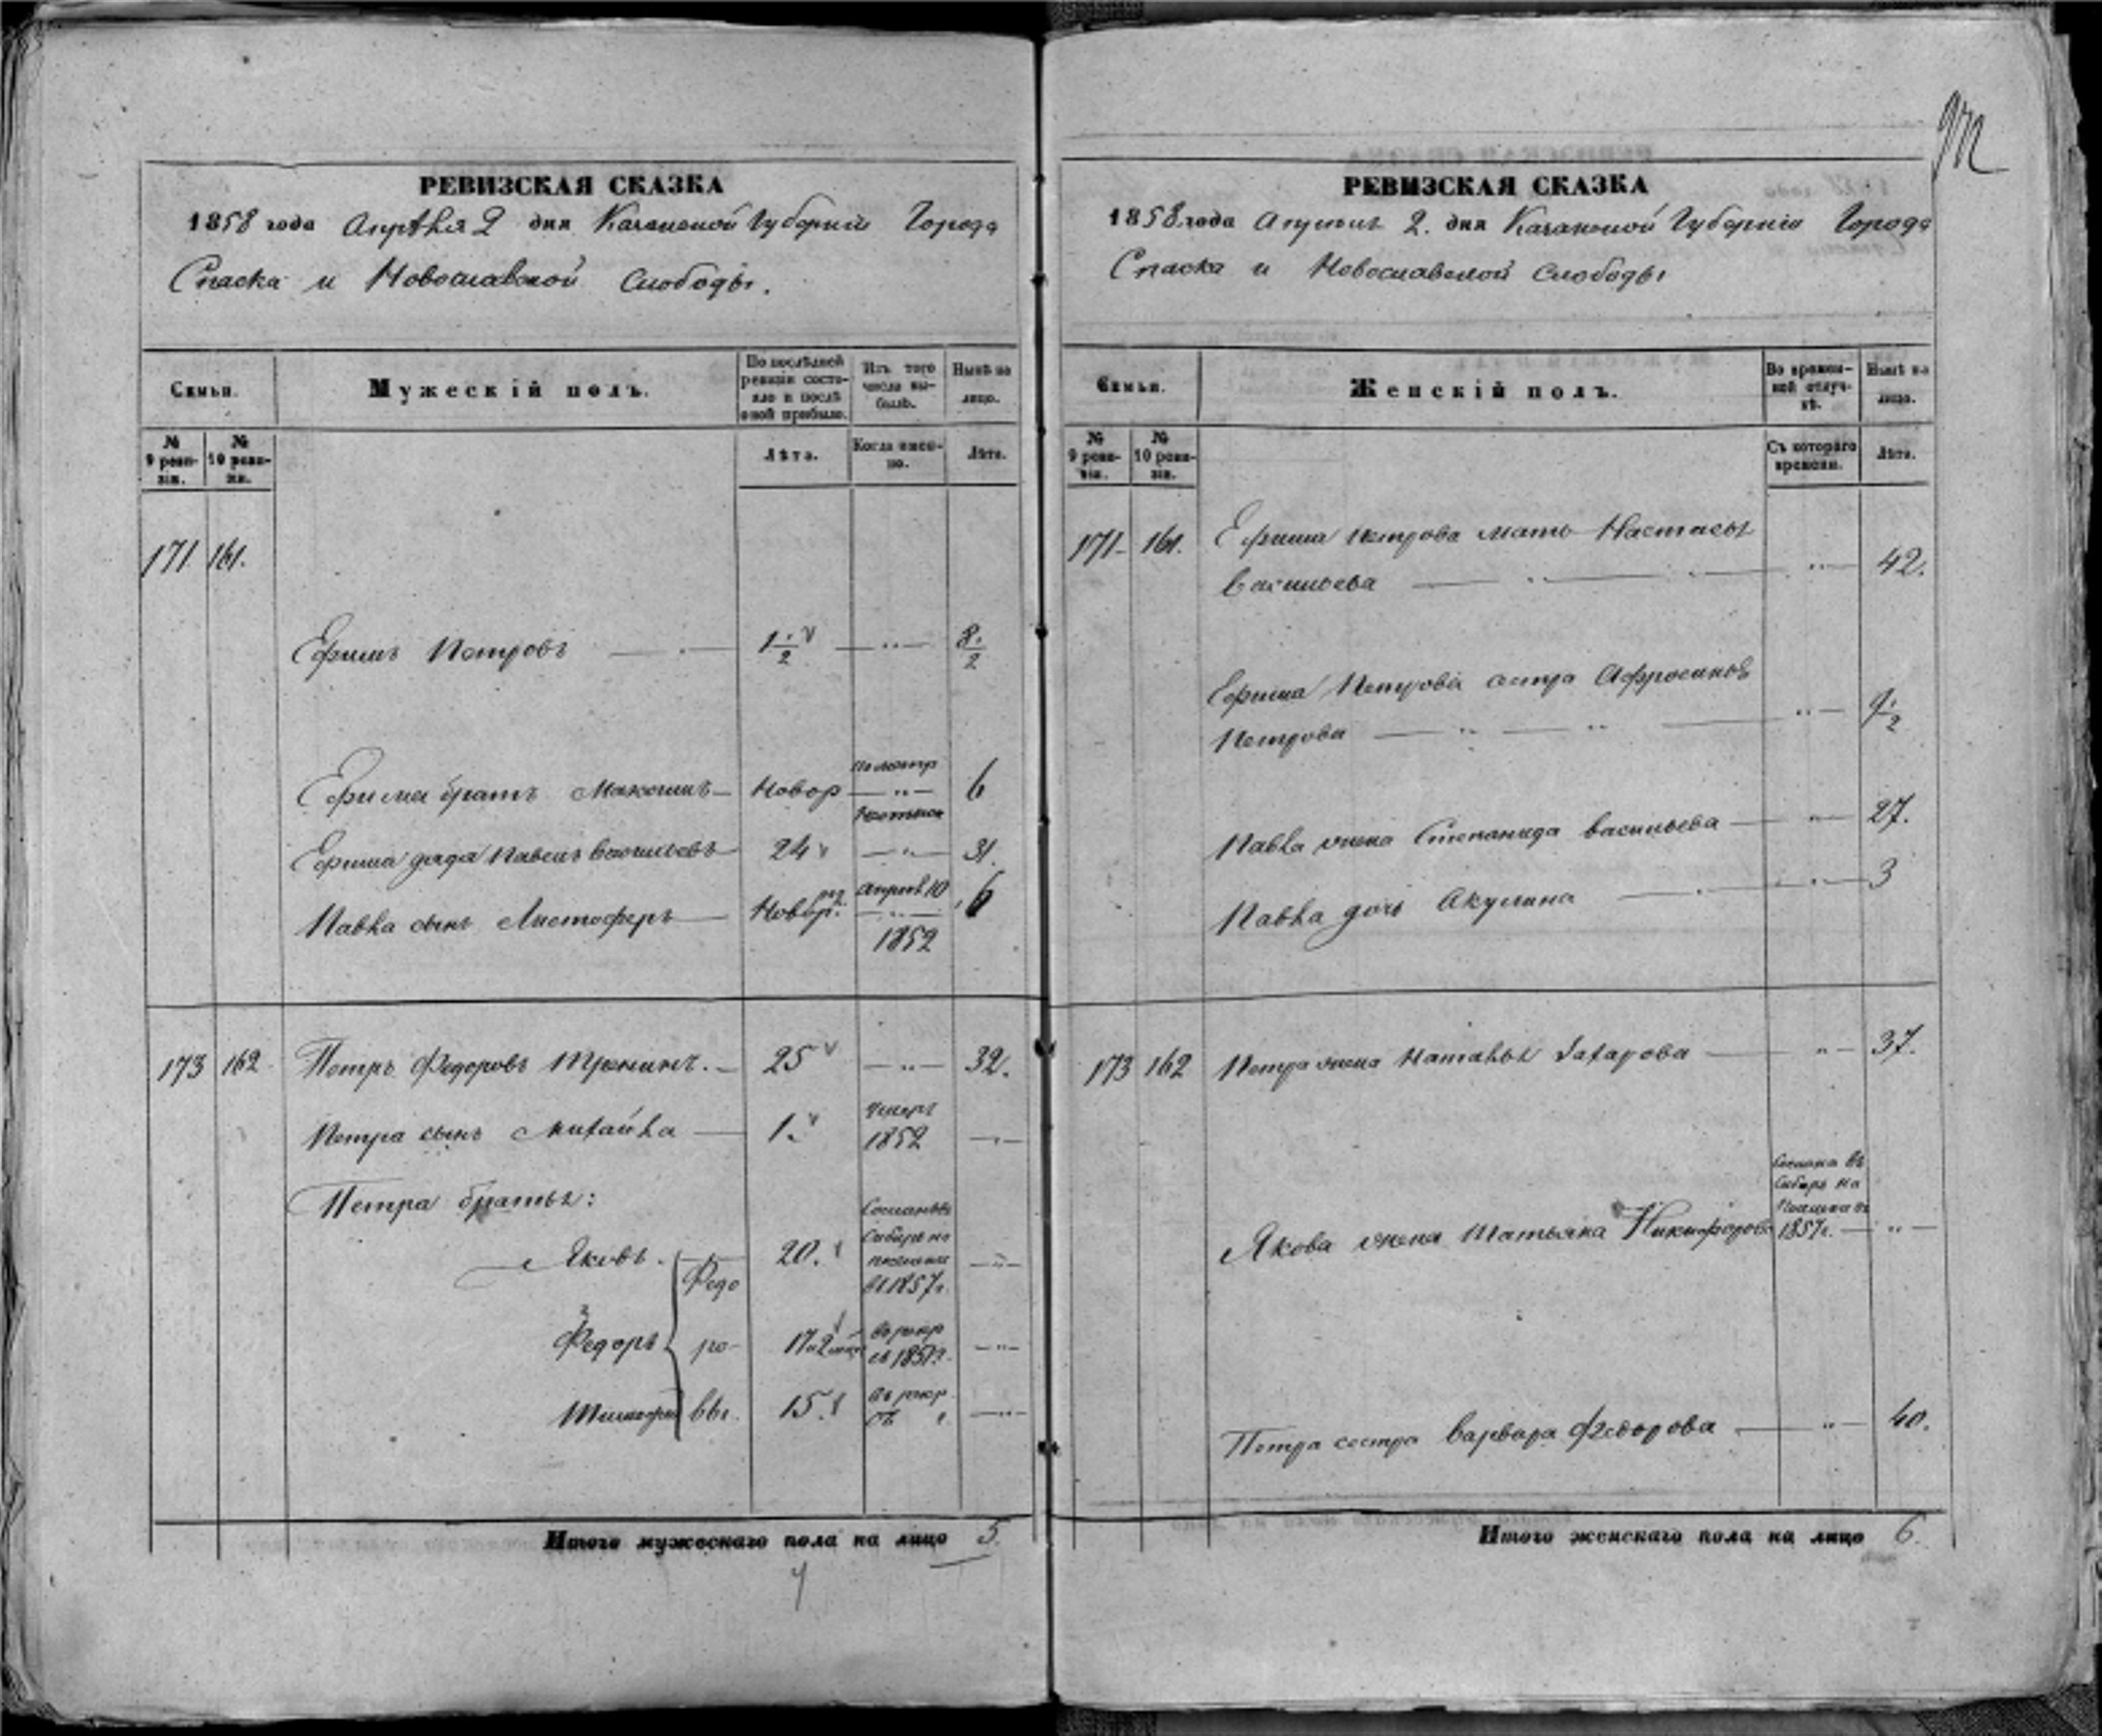 РЕВИЗСКАЯ СКАЗКА
1858 года Апрѣля 2 дня Казанской Губерніи Города
Спаска и Новоспаской Слободы.
Семьи.
Мужескій полъ.
По послѣдней ревизіи состояло и послѣ оной прибыло.
Изъ того числа выбыло.
Нынѣ на лицо.
№ 9 ревизіи.
№ 10 ревизіи.
Лѣта.
Когда именно.
Лѣта.
171 161.
Ефимъ Петровъ 1 1/2 8 1/2
Ефима братъ Максимъ Новор 6
Ефима дядя Павелъ Васильевъ 24 31.
Павла сынъ Новор. апрѣл 10 1852 6
173 162 Петръ Федоровъ 25 32.
Петра сынъ Михайла 1. умеръ 1852
Петра братья:
Яковъ. 20. Сосланъ въ Сибирь на въ 1857 г.
Федоръ 17 въ рекр съ 185
Тимофей 15. въ рекр
Федо
ро
вы.
Итого мужескаго пола на лицо 5.
РЕВИЗСКАЯ СКАЗКА
1858 года Апрѣля 2. дня Казанской Губерніи Города
Спаска и Новоспаской Слободы
Семьи.
Женскій полъ.
Во временной отлучкѣ.
Нынѣ на лицо.
№ 9 ревизіи.
№ 10 ревизіи.
Съ котораго времени.
Лѣта.
171 161. Ефима Петрова мать Настасья
Васильева 42.
Ефима Петрова сестра Афросинья
Петрова
Павла жена Степанида Васильева 27.
Павла дочь Акулина 3
173 162 Петра жена Наталья Захарова 37.
Якова жена Татьяна Никифорова Сослана въ Сибирь на 1857 г.
Петра сестра Варвара Федорова 40.
Итого женскаго пола на лицо 6.